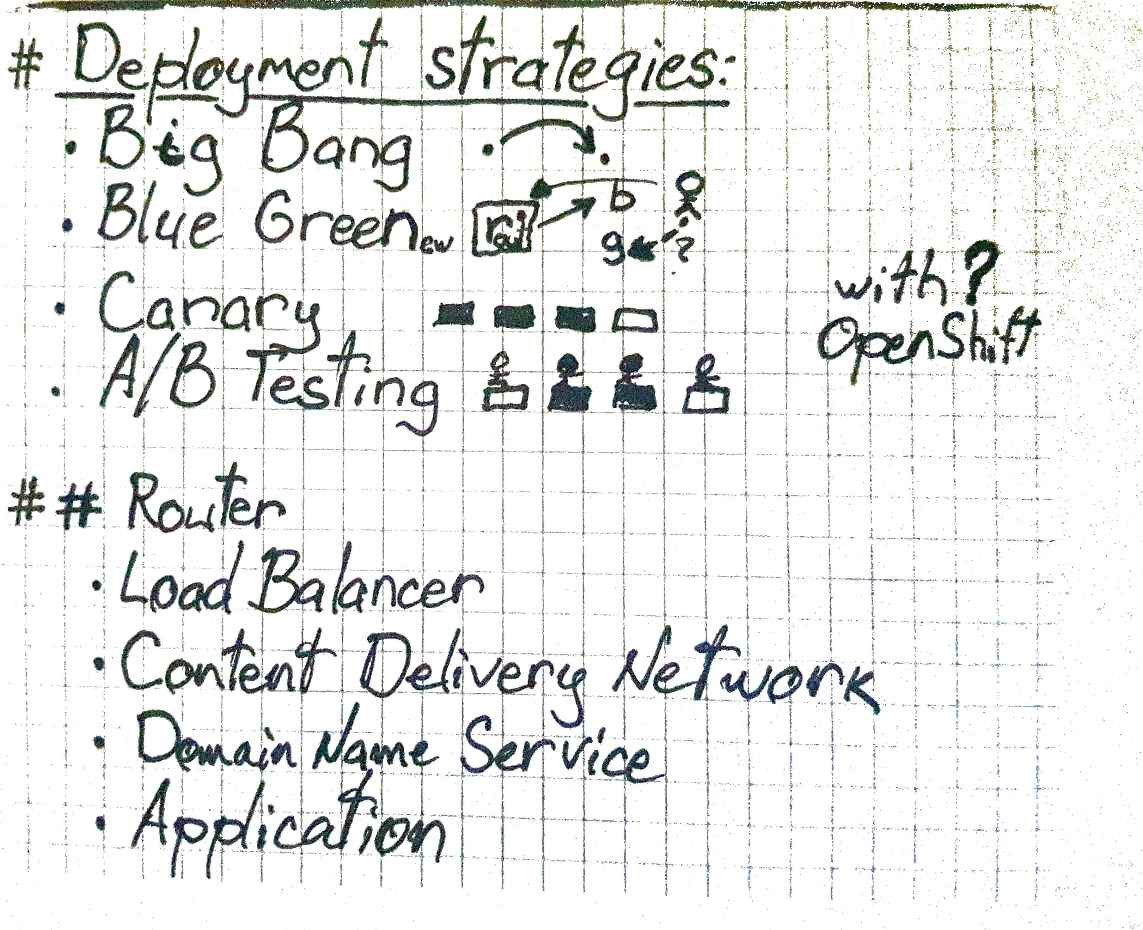 # Deployment strategies:
• Big Bang
• Blue Green ew b
g ?
with?
• Canary
OpenShift
• A/B Testing
## Router
• Load Balancer
• Content Delivery Network
• Domain Name Service
• Application